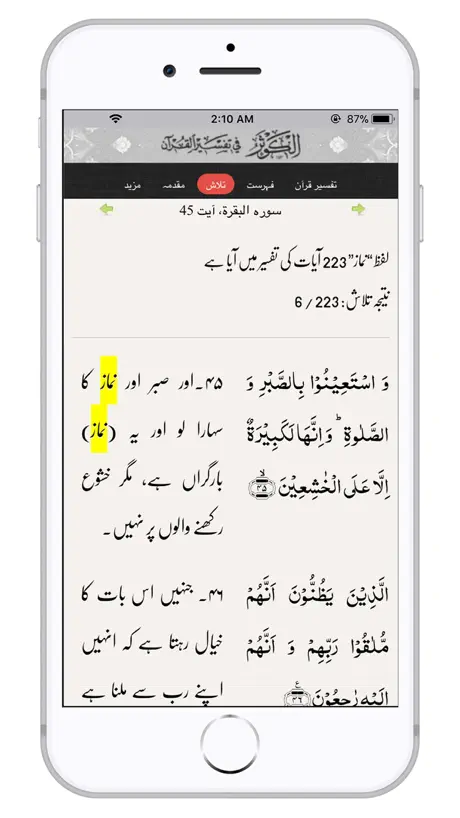 2:10 AM 87%
الکوثر فی تفسیر القرآن
تفسیر قرآن فہرست تلاش مقدمہ مزید
سورہ البقرۃ، آیت 45
لفظ “نماز” 223 آیات کی تفسیر میں آیا ہے
نتیجہ تلاش: 223 / 6
وَ اسۡتَعِیۡنُوۡا بِالصَّبۡرِ وَ
الصَّلٰوۃِ ؕ وَ اِنَّہَا لَکَبِیۡرَۃٌ
اِلَّا عَلَی الۡخٰشِعِیۡنَ ﴿ۙ۴۵﴾
۴۵۔اور صبر اور نماز کا
سہارا لو اور یہ (نماز)
بارگراں ہے، مگر خشوع
رکھنے والوں پر نہیں۔
الَّذِیۡنَ یَظُنُّوۡنَ اَنَّہُمۡ
مُّلٰقُوۡا رَبِّہِمۡ وَ اَنَّہُمۡ
اِلَیۡہِ رٰجِعُوۡنَ ﴿٪۴۶﴾
۴۶۔ جنہیں اس بات کا
خیال رہتا ہے کہ انہیں
اپنے رب سے ملنا ہے